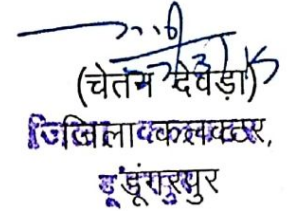 (चेतन देवड़ा)
जिला कलक्टर,
डूंगरपुर